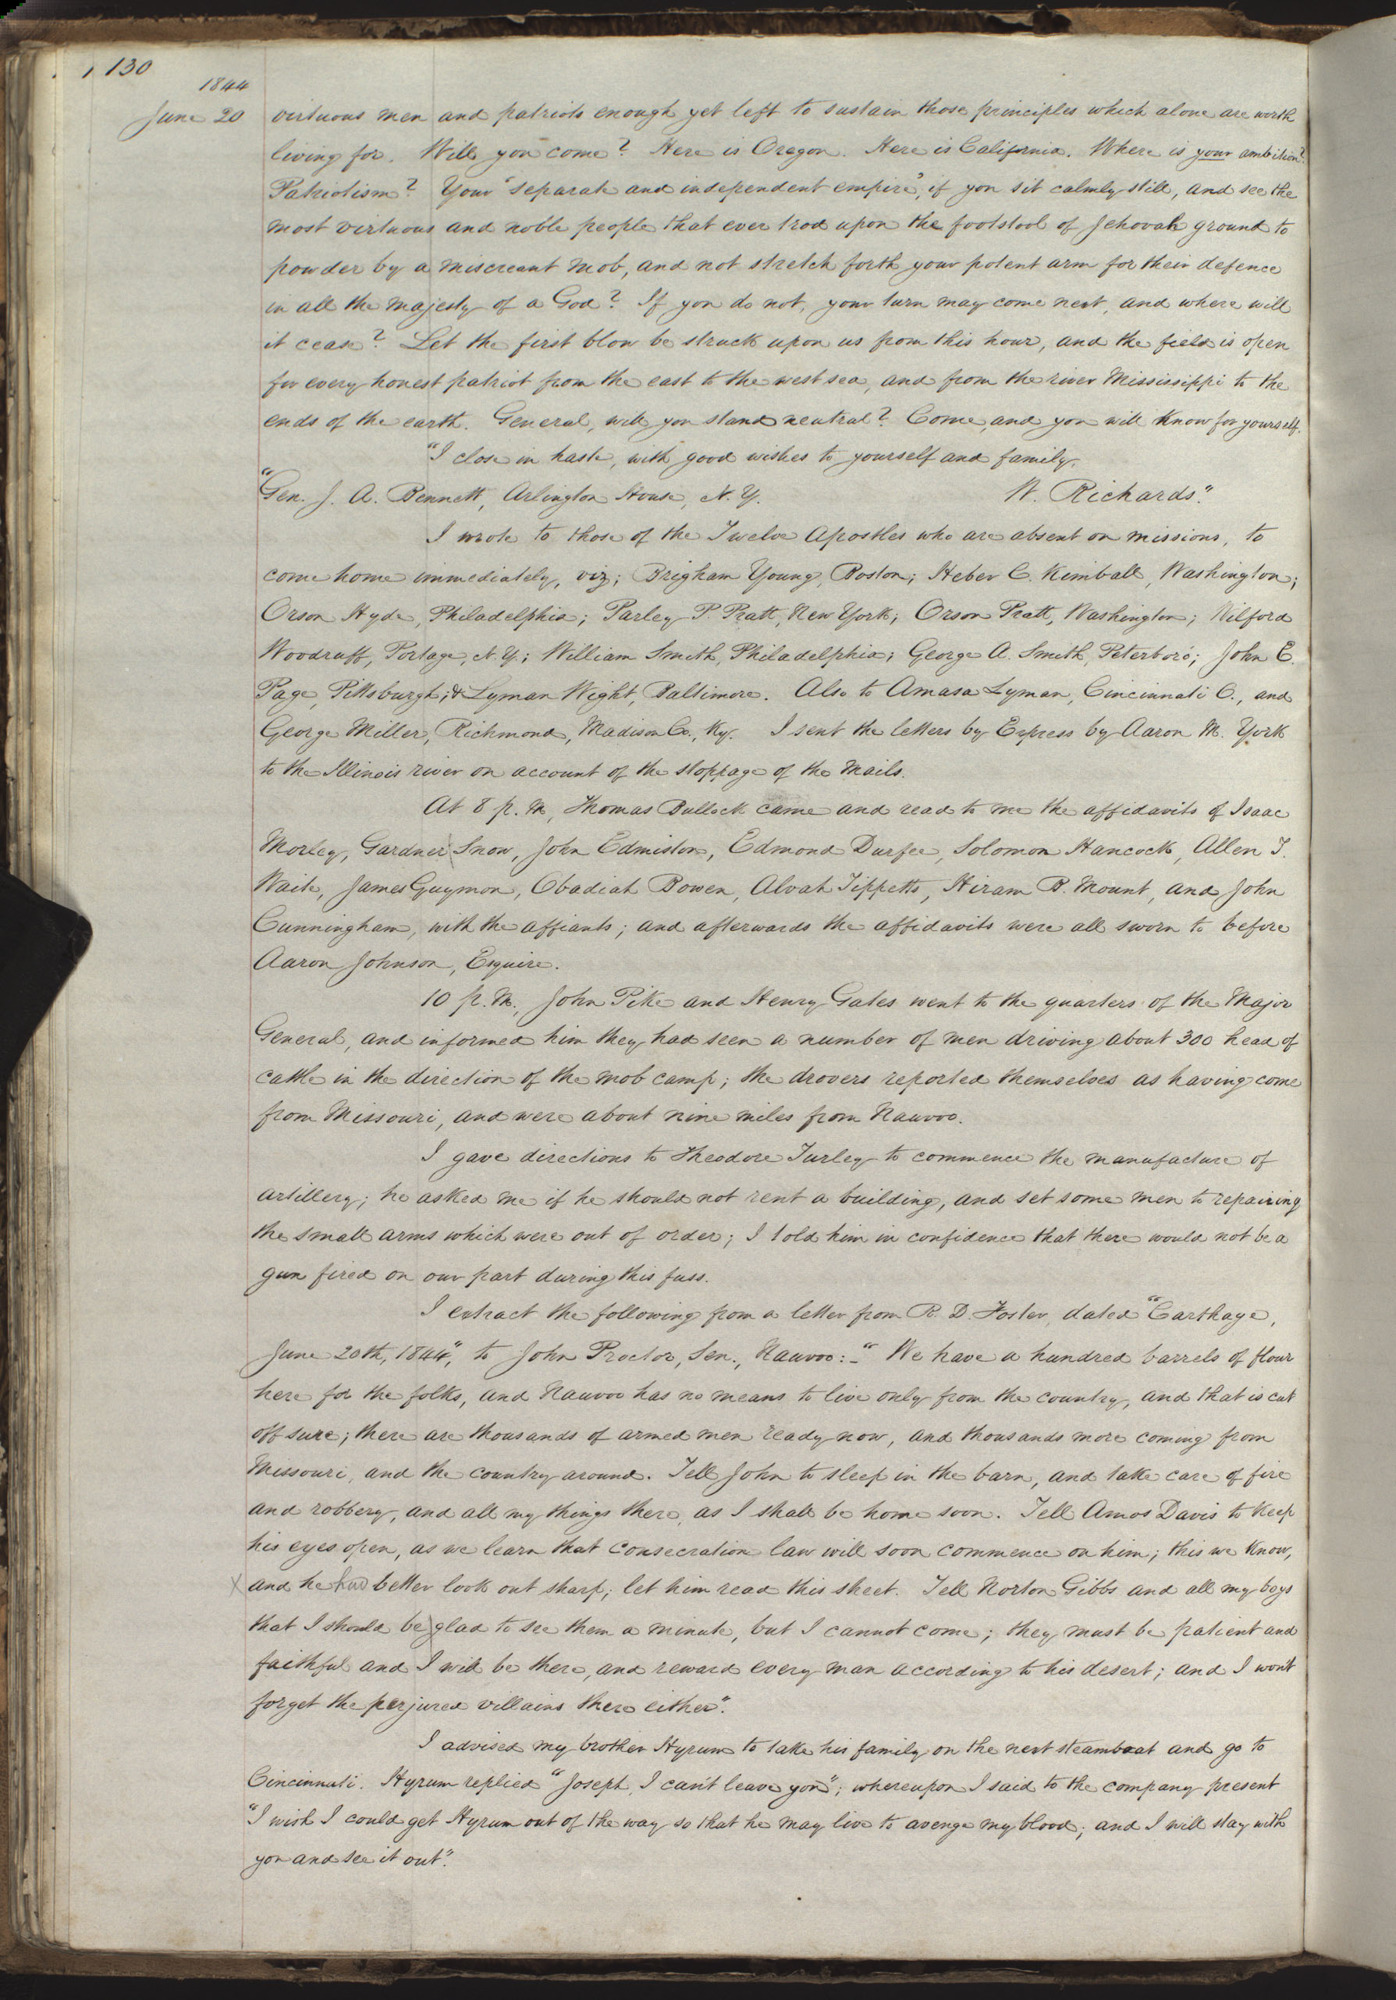 130
1844
June 20 virtuous men and patriots enough yet left to sustain those principles which alone are worth
living for. Will you come? Here is Oregon. Here is California. Where is your ambition?
Patriotism? Your "separate and independent empire," if you sit calmly still, and see the
most virtuous and noble people that ever trod upon the footstool of Jehovah ground to
powder by a miscreant mob, and not stretch forth your potent arm for their defence
in all the majesty of a God? If you do not, your turn may come next, and where will
it cease? Let the first blow be struck upon us from this hour, and the field is open
for every honest patriot from the east to the west sea, and from the river Mississippi to the
ends of the earth. General, will you stand neutral? Come, and you will know for yourself.
"I close in haste, with good wishes to yourself and family.
"Gen. J. A. Bennett, Arlington House, N. Y. W. Richards."
I wrote to those of the Twelve Apostles who are absent on missions, to
come home immediately, viz; Brigham Young, Boston; Heber C. Kimball, Washington;
Orson Hyde, Philadelphia; Parley P. Pratt, New York; Orson Pratt, Washington; Wilford
Woodruff, Portage, N. Y.; William Smith, Philadelphia; George A. Smith, Peterboro; John E.
Page, Pittsburgh; & Lyman Wight, Baltimore. Also to Amasa Lyman, Cincinnati O., and
George Miller, Richmond, Madison Co., Ky. I sent the letters by Express by Aaron M. York
to the Illinois river on account of the stoppage of the Mails.
At 8 p. m, Thomas Bullock came and read to me the affidavits of Isaac
Morley, Gardner Snow, John Edmiston, Edmond Durfee, Solomon Hancock, Allen T.
Waite, James Guymon, Obadiah Bowen, Alvah Tippetts, Hiram B. Mount, and John
Cunningham, with the affiants; and afterwards the affidavits were all sworn to before
Aaron Johnson, Esquire.
10 p. m., John Pike and Henry Gates went to the quarters of the Major
General, and informed him they had seen a number of men driving about 300 head of
cattle in the direction of the mob camp; the drovers reported themselves as having come
from Missouri, and were about nine miles from Nauvoo.
I gave directions to Theodore Turley to commence the manufacture of
artillery; he asked me if he should not rent a building, and set some men to repairing
the small arms which were out of order; I told him in confidence that there would not be a
gun fired on our part during this fuss.
I extract the following from a letter from R. D. Foster, dated "Carthage,
June 20th, 1844", to John Proctor, Sen., Nauvoo:— "We have a hundred barrels of flour
here for the folks, and Nauvoo has no means to live only from the country, and that is cut
off sure; there are thousands of armed men ready now, and thousands more coming from
Missouri, and the country around. Tell John to sleep in the barn, and take care of fire
and robbery, and all my things there, as I shall be home soon. Tell Amos Davis to keep
his eyes open, as we learn that consecration law will soon commence on him; this we know,
X and he had better look out sharp; let him read this sheet. Tell Norton Gibbs and all my boys
that I should be glad to see them a minute, but I cannot come; they must be patient and
faithful and I will be there, and reward every man according to his desert; and I wont
forget the perjured villains there either."
I advised my brother Hyrum to take his family on the next steamboat and go to
Cincinnati. Hyrum replied "Joseph, I can't leave you"; whereupon I said to the company present
"I wish I could get Hyrum out of the way so that he may live to avenge my blood; and I will stay with
you and see it out".